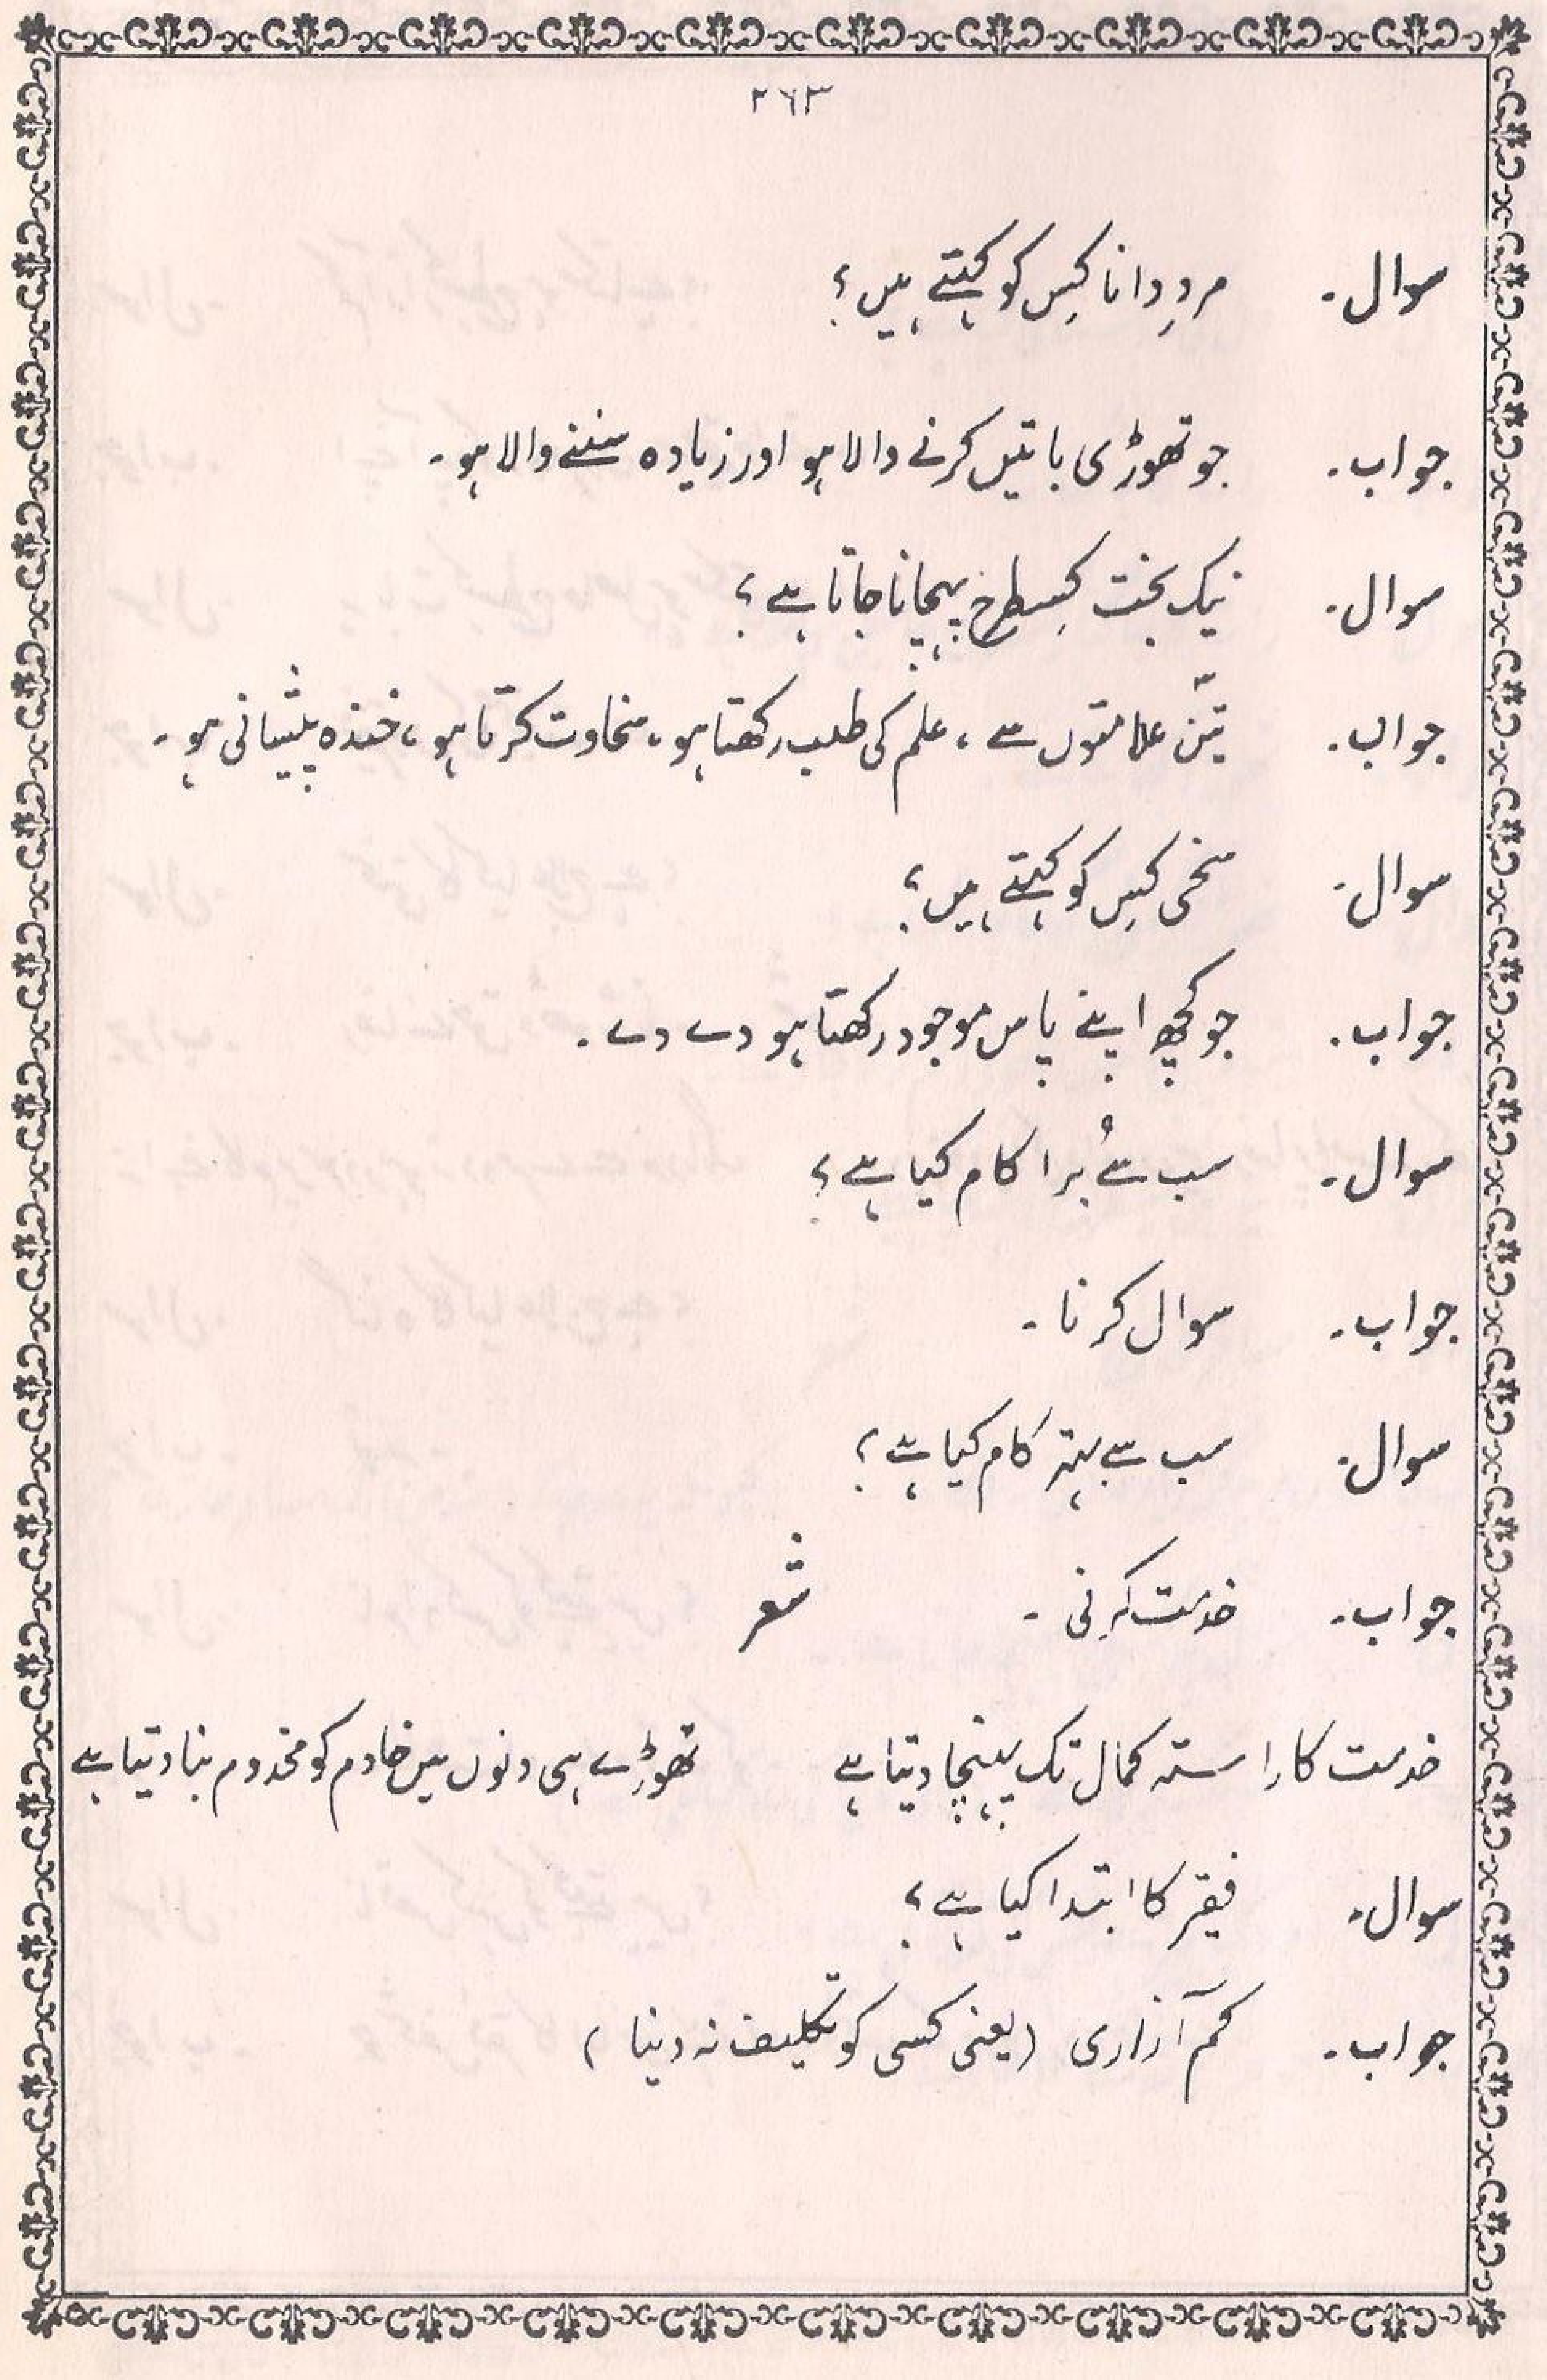 ۲۶۳
سوال۔ مردِ دانا کِس کو کہتے ہیں؟
جواب۔ جو تھوڑی باتیں کرنے والا ہو اور زیادہ سننے والا ہو۔
سوال۔ نیک بخت کِسطرح پہچانا جاتا ہے؟
جواب۔ تین علامتوں سے، علم کی طلب رکھتا ہو، سخاوت کرتا ہو، خندہ پیشانی ہو۔
سوال۔ سخی کِس کو کہتے ہیں؟
جواب۔ جو کچھ اپنے پاس موجود رکھتا ہو دے دے۔
سوال۔ سب سے بُرا کام کیا ہے؟
جواب۔ سوال کرنا۔
سوال۔ سب سے بہتر کام کیا ہے؟
جواب۔ خدمت کرنی۔ شعر
خدمت کا راستہ کمال تک پہنچا دیتا ہے تھوڑے ہی دنوں میں خادم کو مخدوم بنا دیتا ہے
سوال۔ فیقر کا ابتدا کیا ہے؟
جواب۔ کم آزاری (یعنی کسی کو تکلیف نہ دینا)